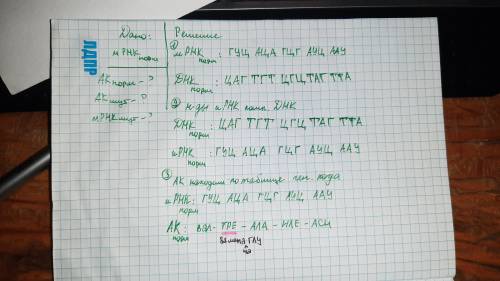 Дано:
мРНК норм
АК норм - ?
АК мут - ?
мРНК мут - ?
ЛДПР
Решение
① мРНК норм: ГУЦ АЦА ГЦГ АУЦ ААУ
ДНК норм: ЦАГ ТГТ ЦГЦ ТАГ ТТА
② н-ды иРНК комп. ДНК
ДНК норм: ЦАГ ТГТ ЦГЦ ТАГ ТТА
иРНК норм: ГУЦ АЦА ГЦГ АУЦ ААУ
③ АК находим по таблице ген. кода
иРНК норм: ГУЦ АЦА ГЦГ АУЦ ААУ
АК норм: ВАЛ - ТРЕ - АЛА - ИЛЕ - АСН
замена ГЛУ
на